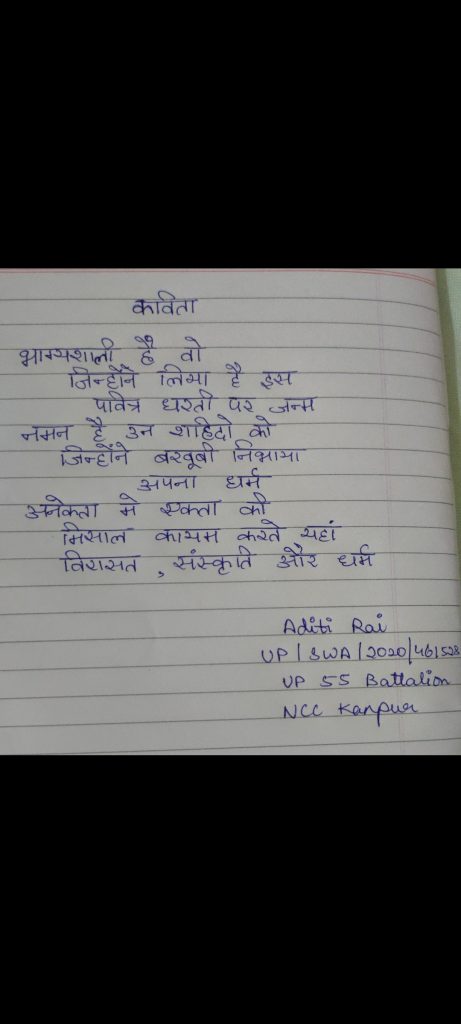 कविता
भाग्यशाली है वो
जिन्होंने लिया है इस
पवित्र धरती पर जन्म
नमन है उन शाहिदो को
जिन्होंने बखूबी निभाया
अपना धर्म
अनेकता मे एकता की
मिसाल कायम करते यहां
विरासत , संस्कृति और धर्म
Aditi Rai
UP/SWA/2020/461528
UP 55 Battalion
NCC Kanpur